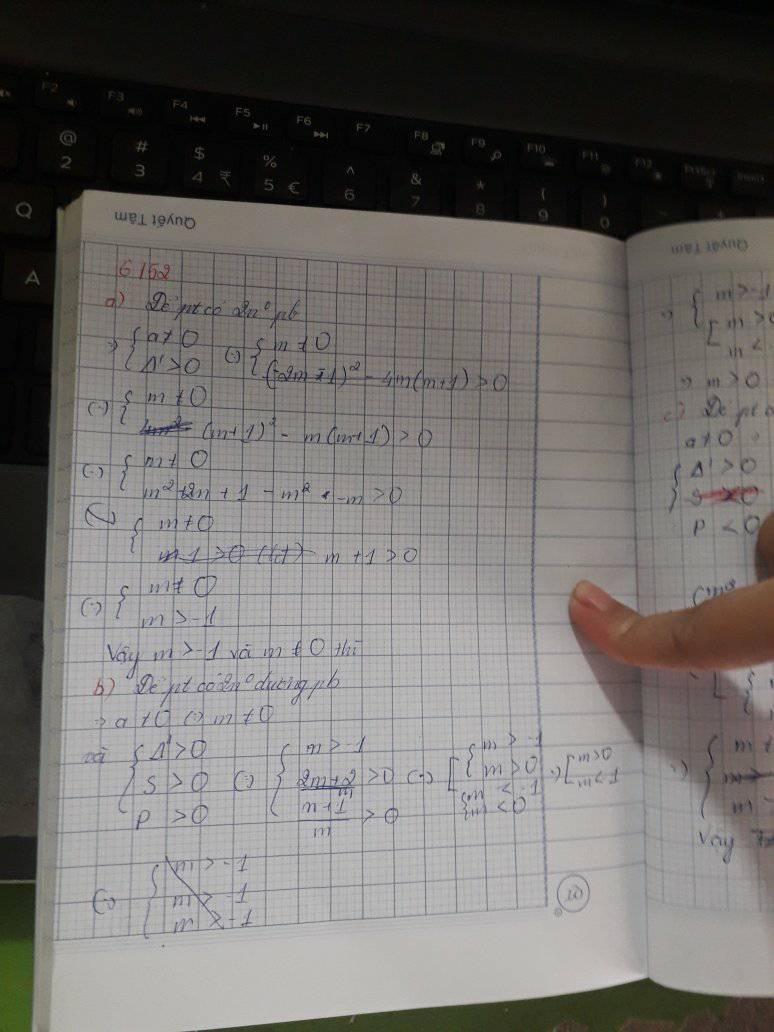 F2 F3 F4 F5 F6 F7 F8 F9 F10 F11 F12
@ # $ % ^ & * ( )
2 3 4 ₹ 5 € 6 7 8 9 0
Q
A
Quyết Tâm
Quyết Tâm
6/52
a) Để pt có 2n⁰ pb
=> { a ≠ 0 (=) { m ≠ 0
Δ' > 0 (-2m+1)² - 4m(m+1) > 0
(=) { m ≠ 0
(m+1)² - m(m+1) > 0
(=) { m ≠ 0
m² + 2m + 1 - m² - m > 0
{ m ≠ 0
m + 1 > 0
(=) { m ≠ 0
m > -1
Vậy m > -1 và m ≠ 0 thì
b) Để pt có 2n⁰ dương pb
=> a ≠ 0 (=) m ≠ 0
và { Δ' > 0 (=) { m > -1 (=) [ { m > -1 => [ m > 0
S > 0 2m+2/m > 0 m > 0 m > -1
P > 0 m+1/m > 0 { m < -1
m < 0
(=) { m > -1
m > -1
m > -1
=> { m > -1
[ m > 0
m <
=> m > 0
c) Để pt
a ≠ 0
{ Δ' > 0
S > 0
P < 0
m
Vậy